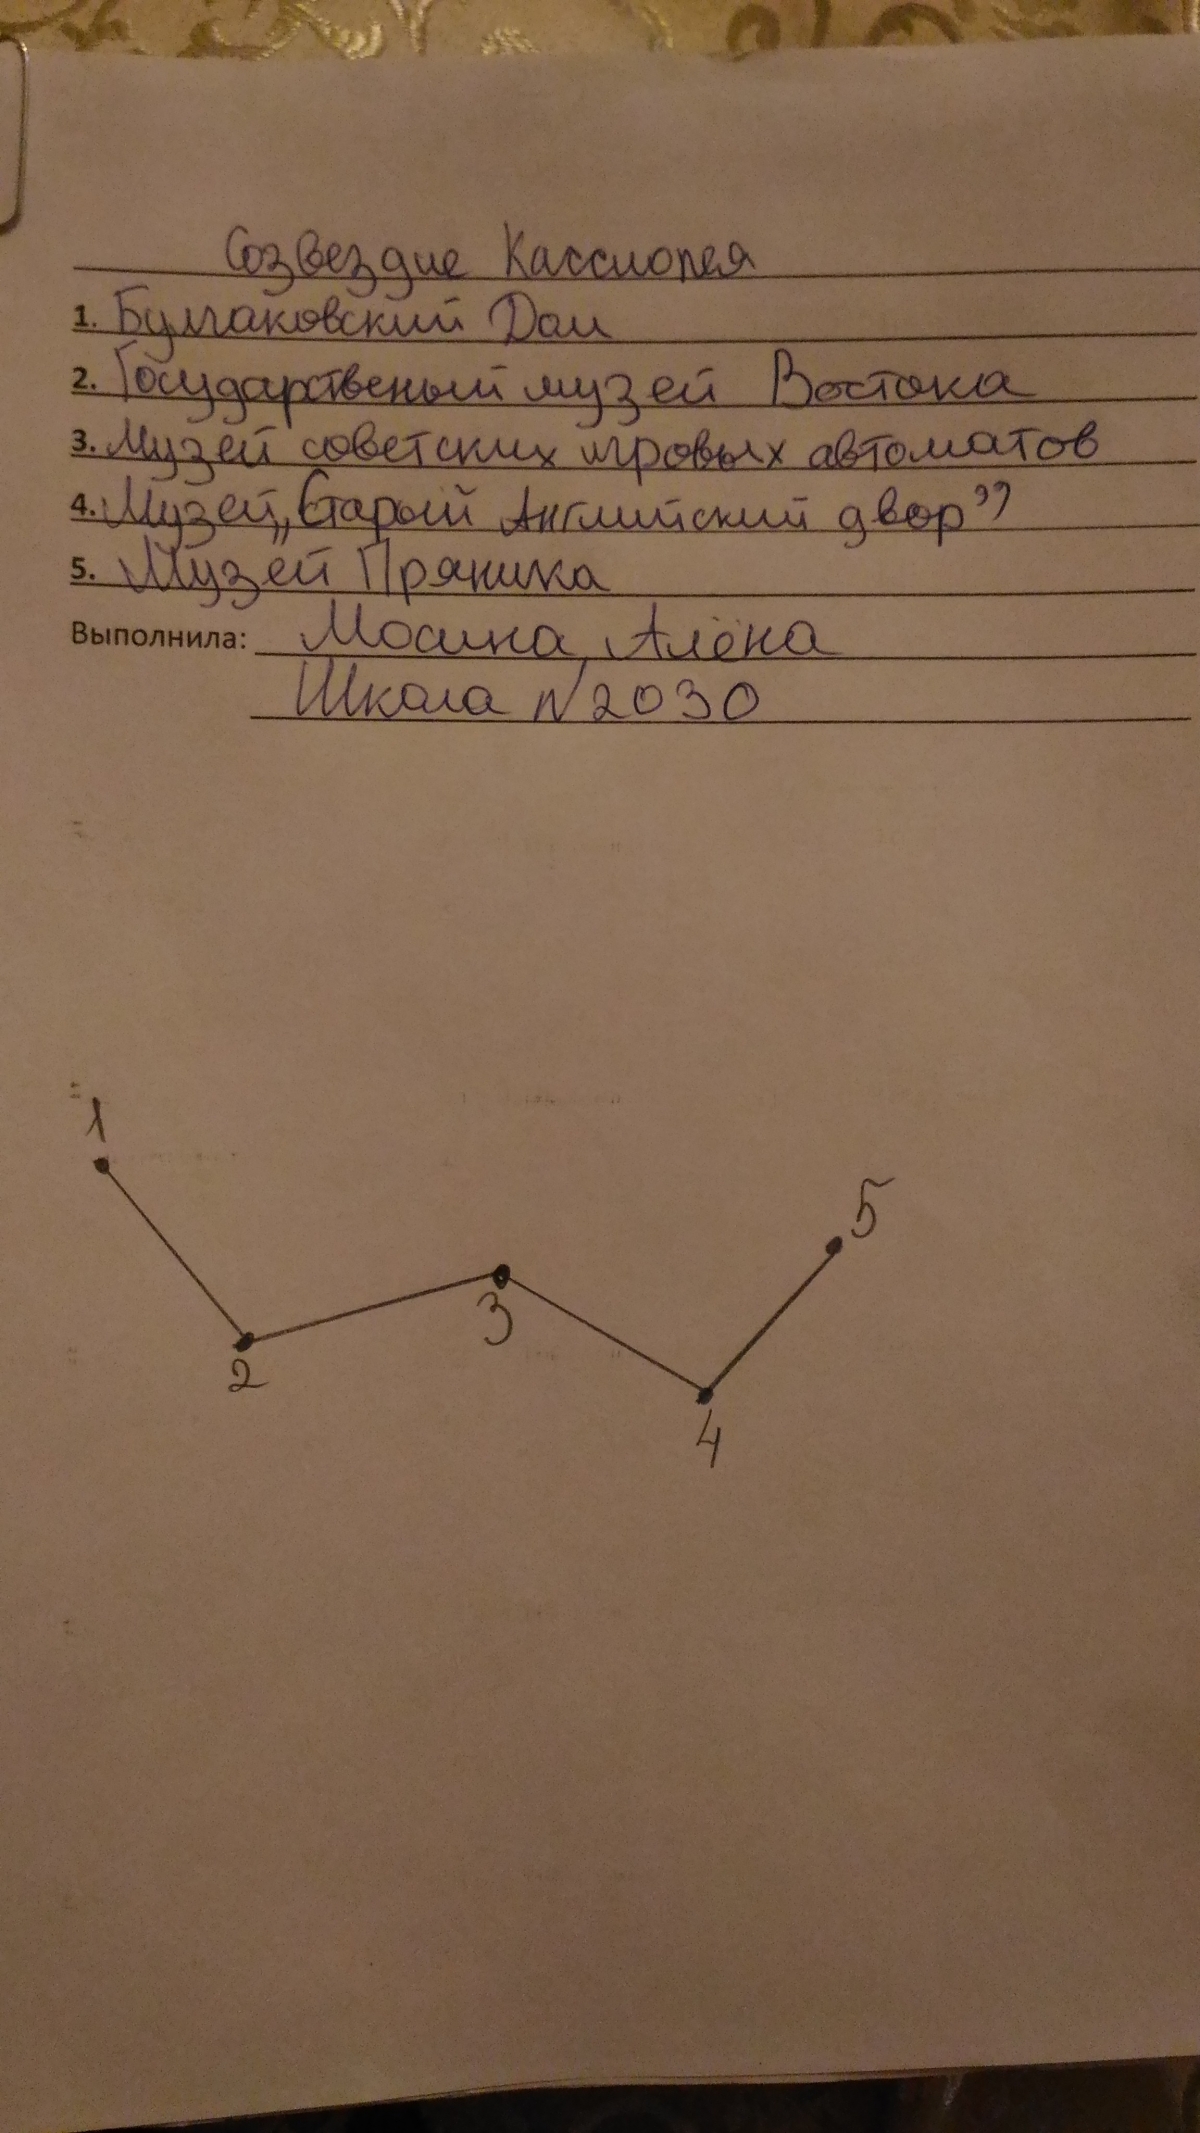 Созвездие Кассиопея
1. Булгаковский Дом
2. Государственый музей Востока
3. Музей советских игровых автоматов
4. Музей „Старый Английский двор”
5. Музей Пряника
Выполнила: Мосина Алёна
Школа №2030
1
5
3
2
4